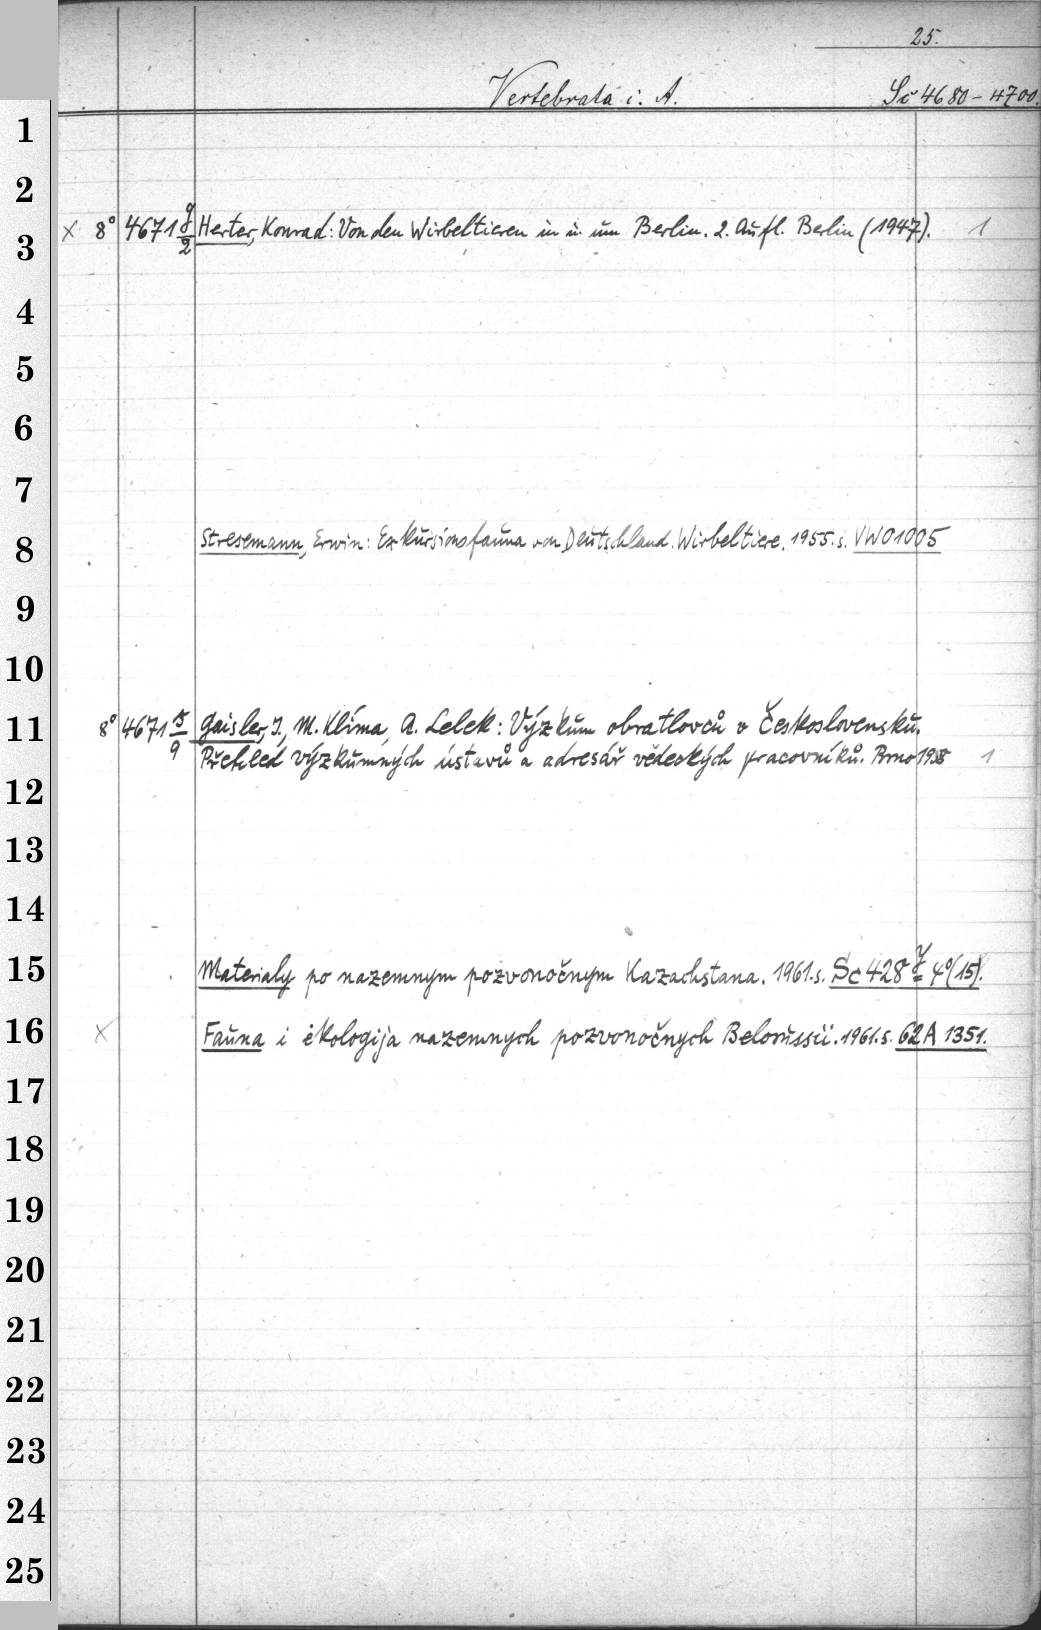 25.
Vertebrata i. A. Sc 4680-4700.
1
2
× 8° 4671 Herter, Konrad: Von den Wirbeltieren in u. um Berlin. 2. Aufl. Berlin (1947). 1
3 2
4
5
6
7
8 Stresemann, Erwin: Exkursionsfauna von Deutschland. Wirbeltiere. 1955. s. VW01005
9
10
11 8° 4671 Gaisler, J., M. Klíma, A. Lelek: Výzkum obratlovců v Československu.
9 Přehled výzkumných ústavů a adresář vědeckých pracovníků. Brno 1958 1
12
13
14
15 Materialy po nazemnym pozvonočnym Kazachstana. 1961. s. Sc 428 4°(15).
16 × Fauna i ėkologija nazemnych pozvonočnych Belorussii. 1961. s. 62A 1351.
17
18
19
20
21
22
23
24
25